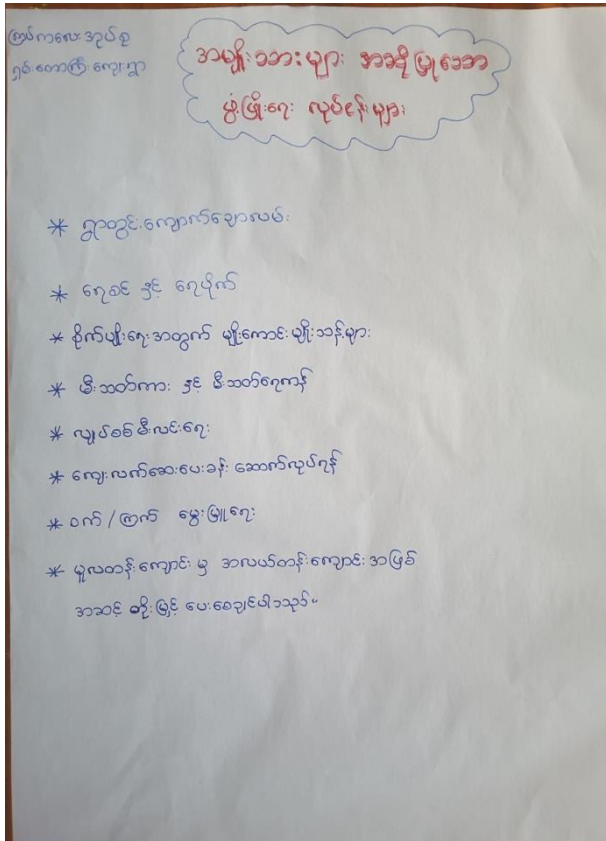 ကြပ်ကလေး အုပ်စု
ရှမ်းတောကြီး ကျေးရွာ
အမျိုးသားများ အဆိုပြုသော
ဖွံ့ဖြိုးရေး လုပ်ငန်းများ
* ရွာတွင်းကျောက်ချောလမ်း
* ရေစင် နှင့် ရေပိုက်
* စိုက်ပျိုးရေးအတွက် မျိုးကောင်းမျိုးသန့်များ
* မီးသတ်ကား နှင့် မီးသတ်ရေကန်
* လျှပ်စစ်မီးလင်းရေး
* ကျေးလက်ဆေးပေးခန်း ဆောက်လုပ်ရန်
* ဝက်/ကြက် မွေးမြူရေး
* မူလတန်းကျောင်း မှ အလယ်တန်းကျောင်း အဖြစ်
အဆင့် တိုးမြှင့် ပေးစေချင်ပါသည်။